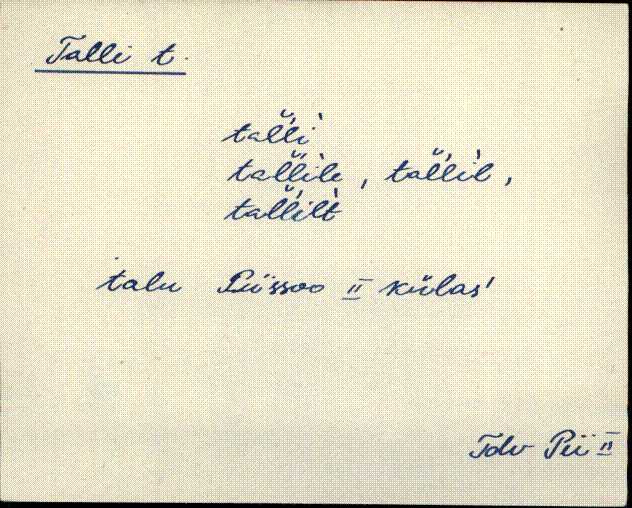 Talli t.
tal̆l̆i̇̀
tal̆l̆ile, tal̆l̆il,
tal̆l̆ilt
talu Piissoo II külas'
Tdv Pii II